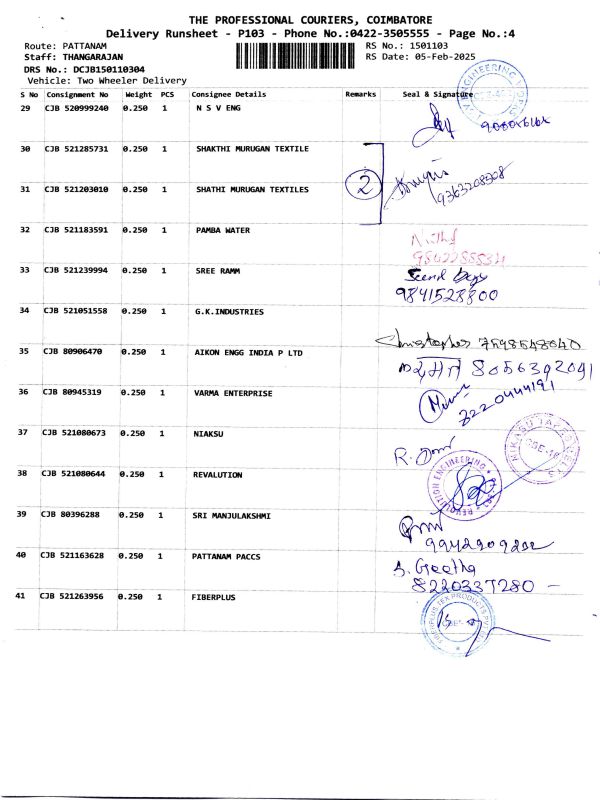 THE PROFESSIONAL COURIERS, COIMBATORE
Delivery Runsheet - P103 - Phone No.:0422-3505555 - Page No.:4
Route: PATTANAM RS No.: 1501103
Staff: THANGARAJAN RS Date: 05-Feb-2025
DRS No.: DCJB150110304
Vehicle: Two Wheeler Delivery
S No Consignment No Weight PCS Consignee Details Remarks Seal & Signature
29 CJB 520999240 0.250 1 N S V ENG
30 CJB 521285731 0.250 1 SHAKTHI MURUGAN TEXTILE
2
31 CJB 521203010 0.250 1 SHATHI MURUGAN TEXTILES 9363208308
32 CJB 521183591 0.250 1 PAMBA WATER
33 CJB 521239994 0.250 1 SREE RAMM
9841528800
34 CJB 521051558 0.250 1 G.K.INDUSTRIES
Christopher 7598548040
35 CJB 80906470 0.250 1 AIKON ENGG INDIA P LTD 8056392091
36 CJB 80945319 0.250 1 VARMA ENTERPRISE 7220444191
37 CJB 521080673 0.250 1 NIAKSU
38 CJB 521080644 0.250 1 REVALUTION
REVOLUTION ENGINEERING
39 CJB 80396288 0.250 1 SRI MANJULAKSHMI
9942209202
40 CJB 521163628 0.250 1 PATTANAM PACCS S. Geetha
8220337280
41 CJB 521263956 0.250 1 FIBERPLUS
FIBERPLUS TEX PRODUCTS PVT